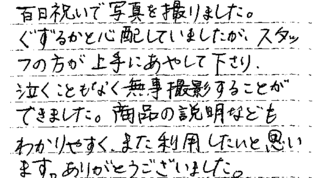 百日祝いで写真を撮りました。
ぐずるかと心配していましたが、スタッ
フの方が上手にあやして下さり、
泣くこともなく無事撮影することが
できました。商品の説明なども
わかりやすく、また利用したいと思い
ます。ありがとうございました。